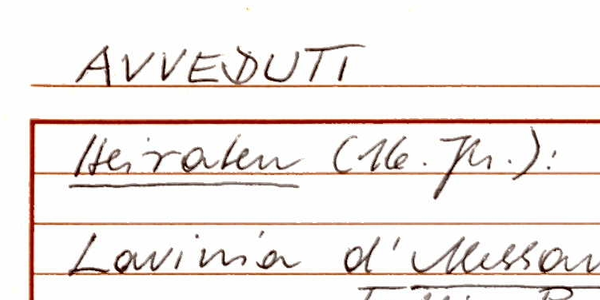 AVVEDUTI
Heiraten (16. Jh.):
Lavinia d'